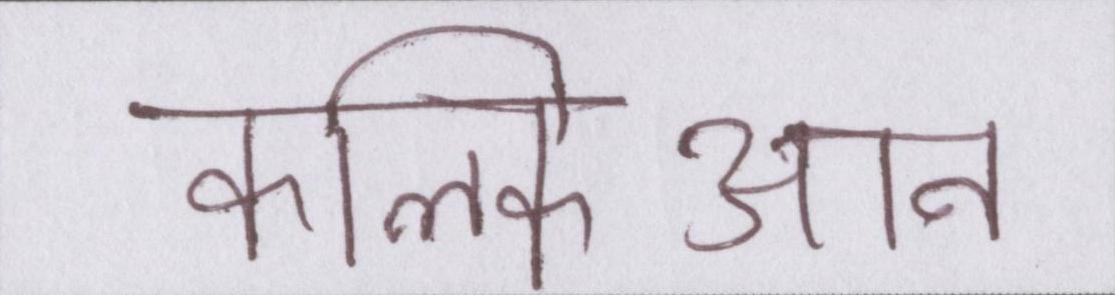 कल्कि आन